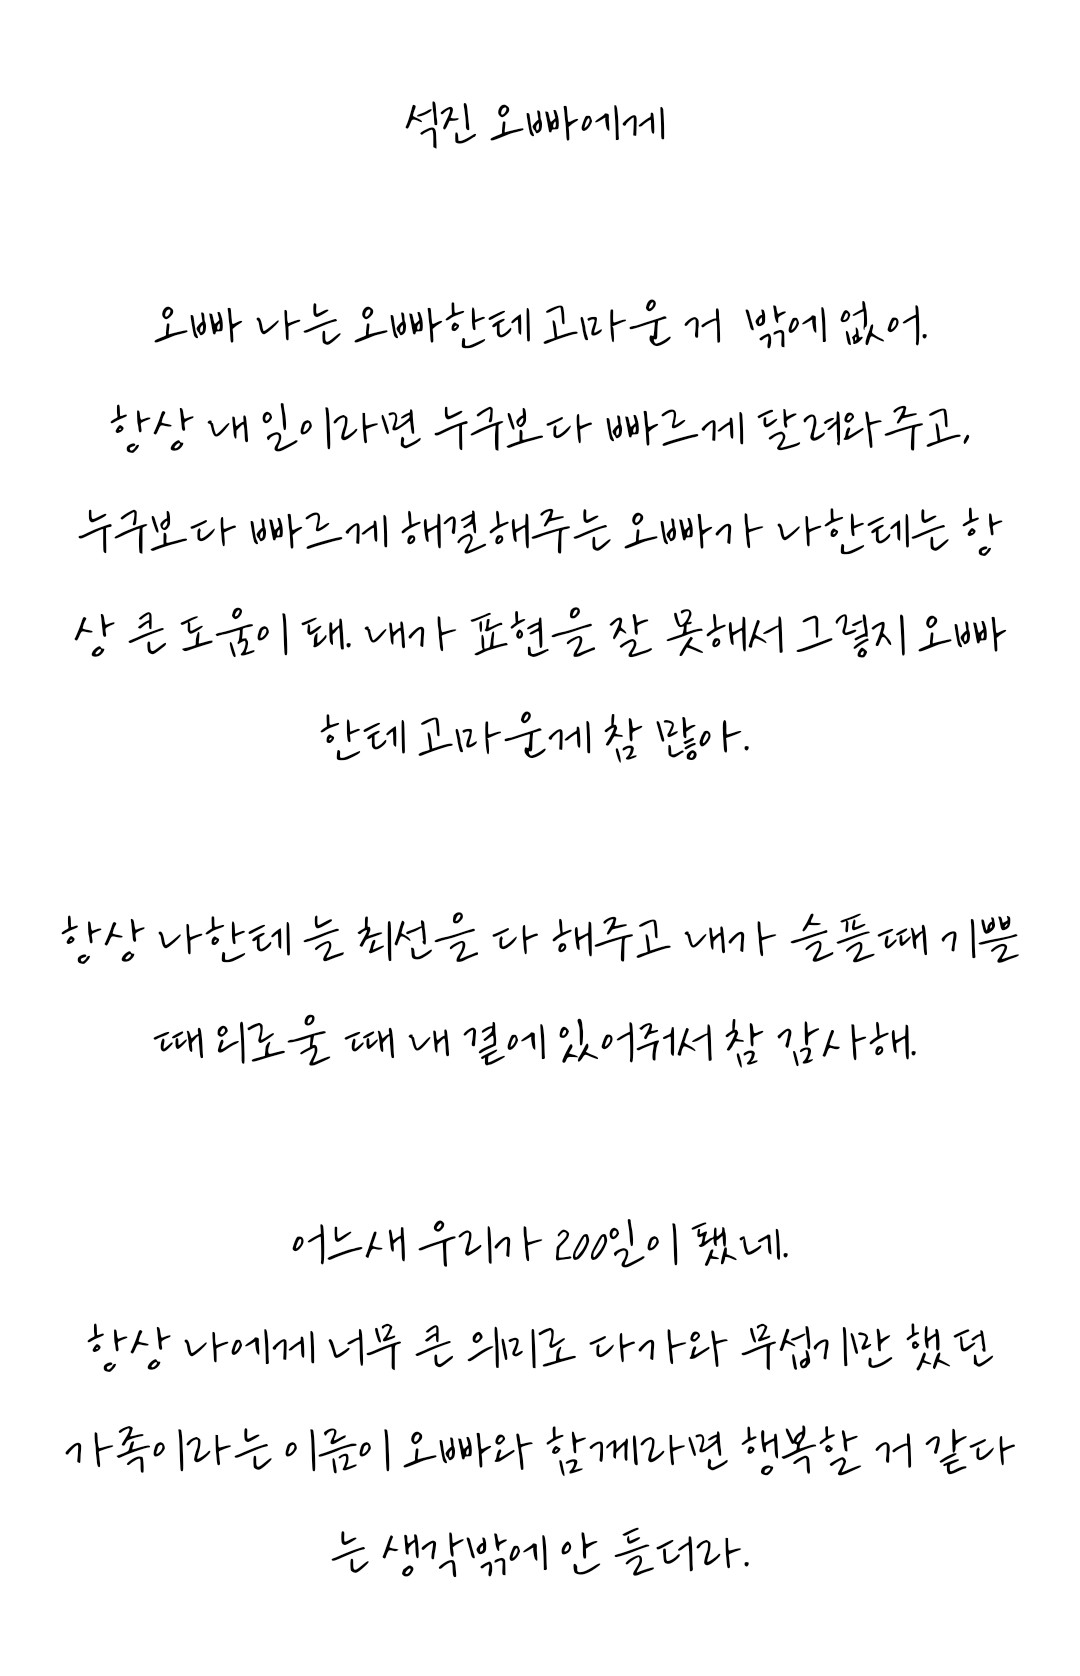 석진 오빠에게
오빠 나는 오빠한테 고마운 거 밖에 없어.
항상 내 일이라면 누구보다 빠르게 달려와주고,
누구보다 빠르게 해결해주는 오빠가 나한테는 항
상 큰 도움이 돼. 내가 표현을 잘 못해서 그렇지 오빠
한테 고마운게 참 많아.
항상 나한테 늘 최선을 다 해주고 내가 슬플때 기쁠
때 외로울 때 내 곁에 있어줘서 참 감사해.
어느새 우리가 200일이 됐네.
항상 나에게 너무 큰 의미로 다가와 무섭기만 했던
가족이라는 이름이 오빠와 함께라면 행복할 거 같다
는 생각밖에 안 들더라.